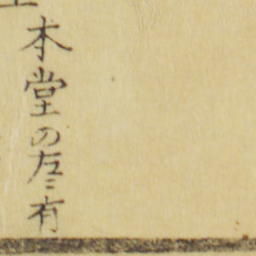 本堂の左ニ有